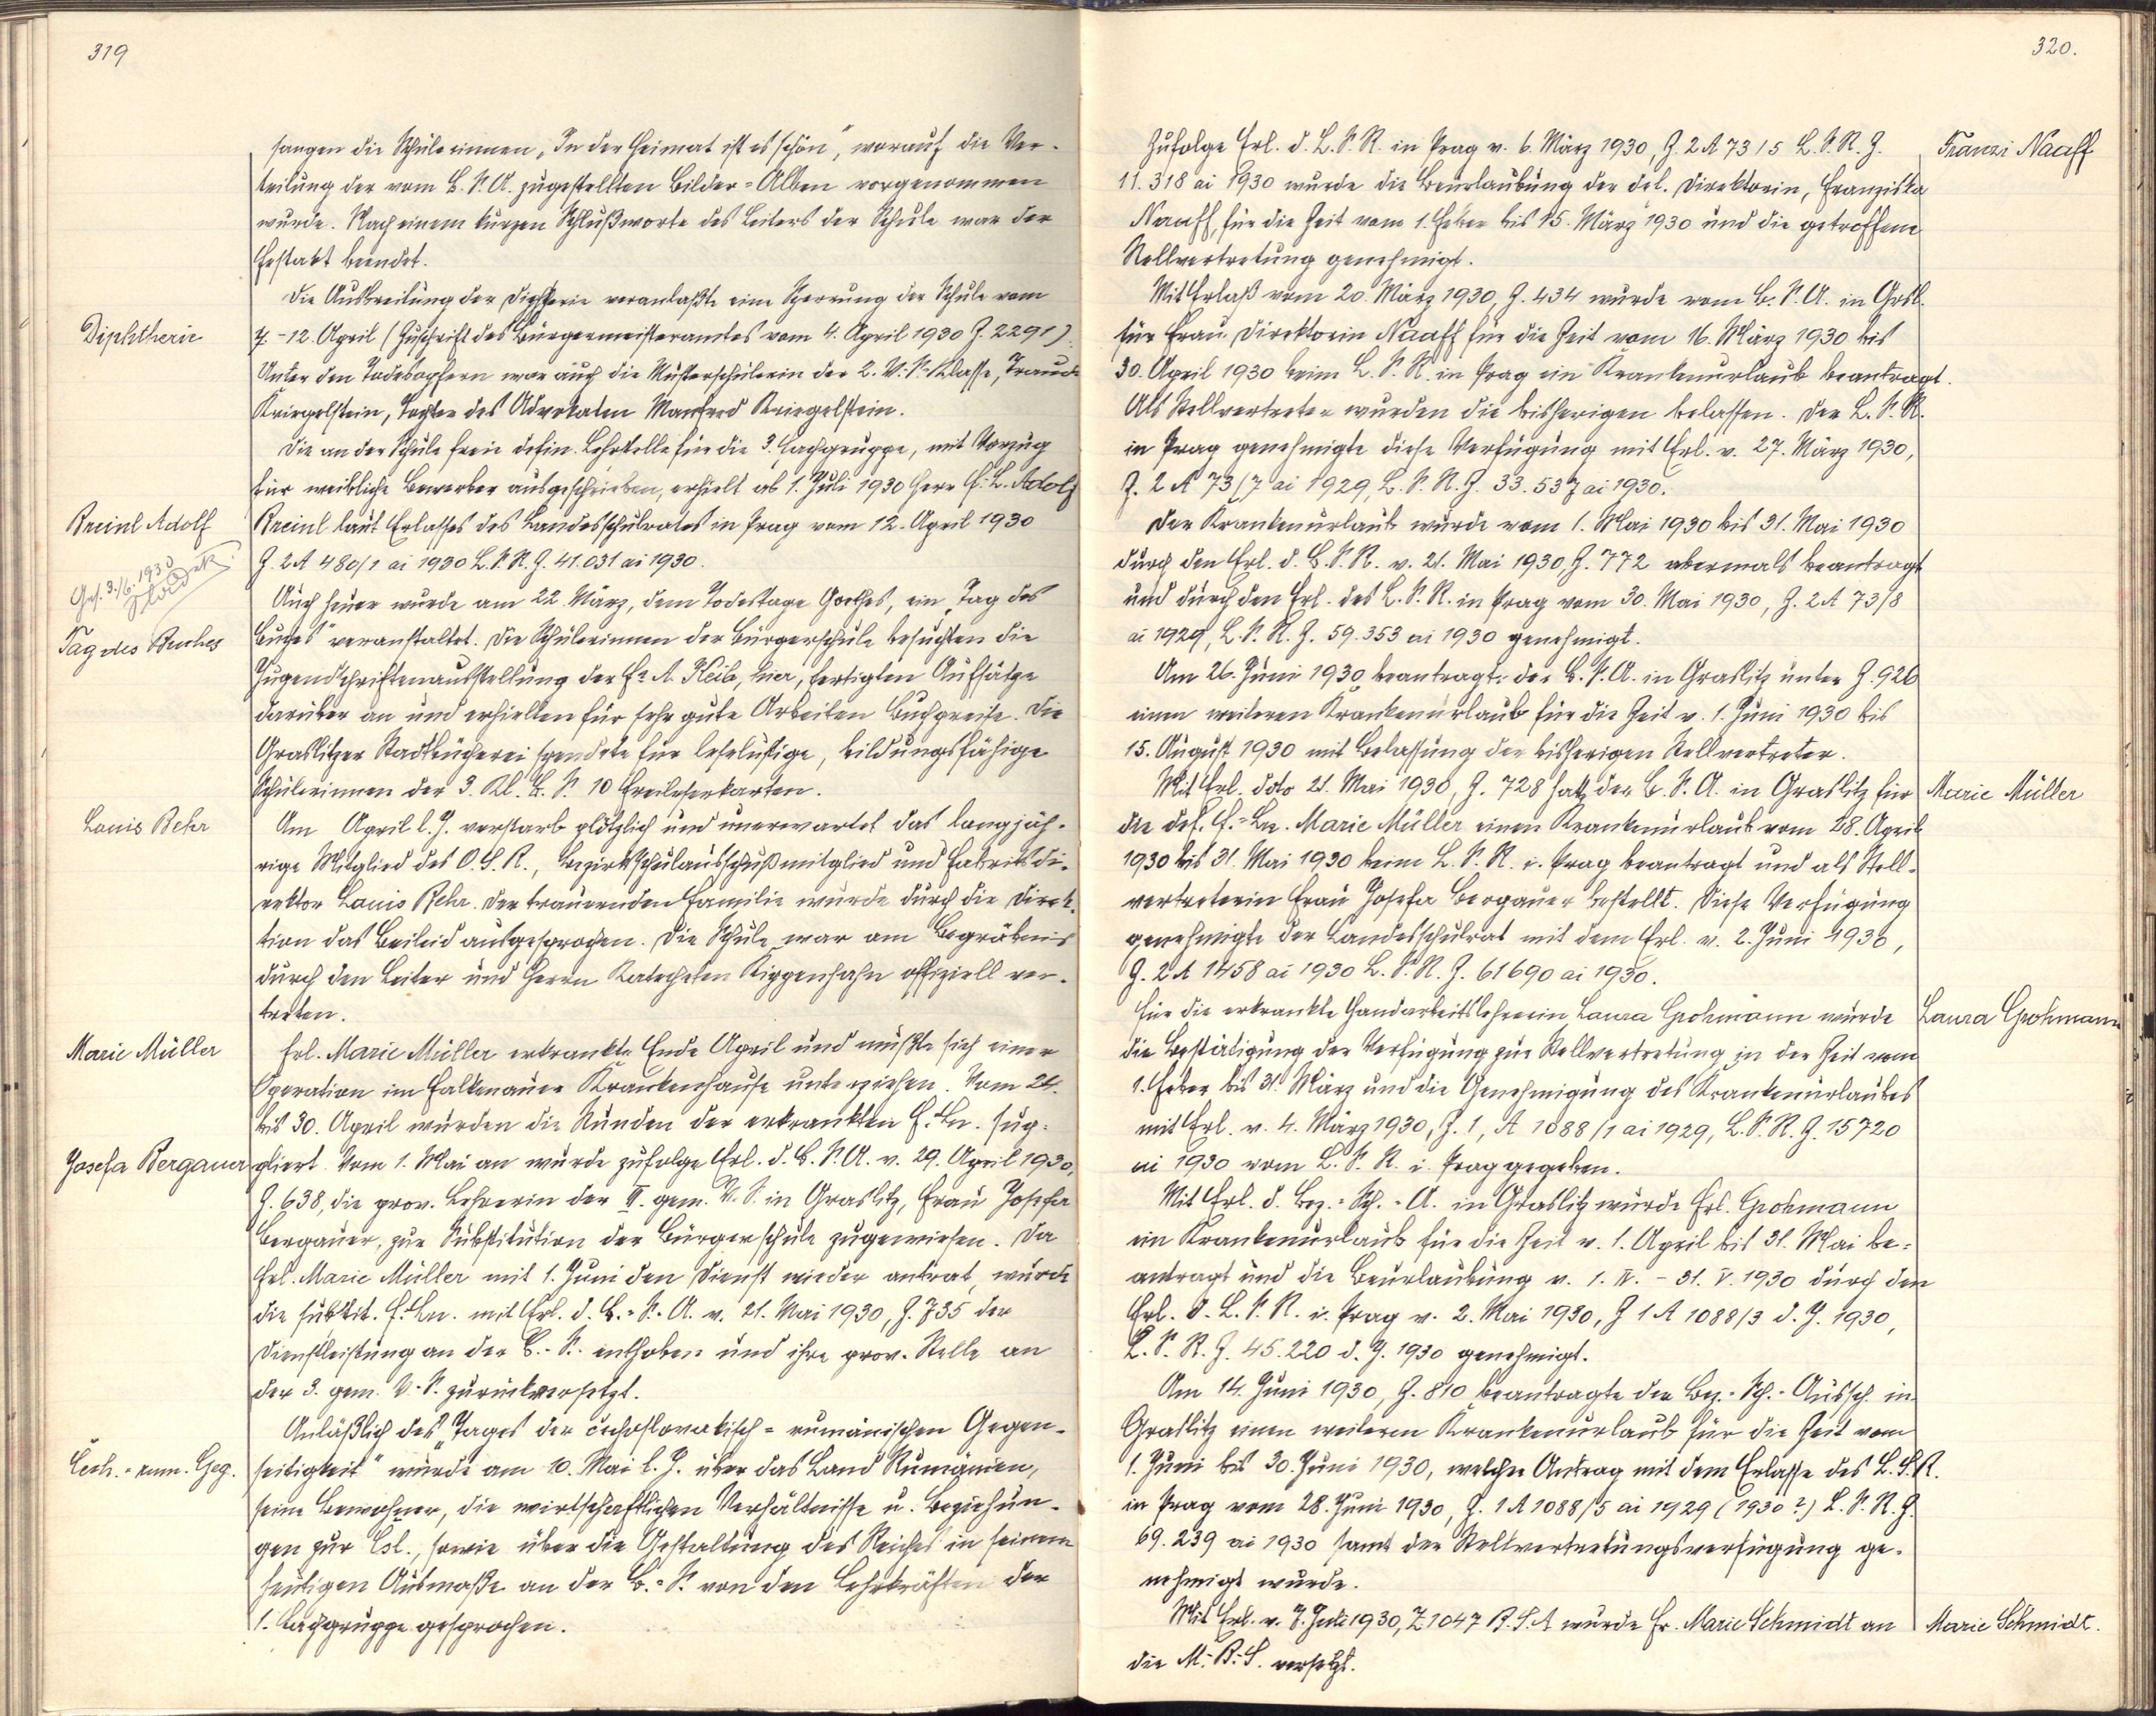 319
sangen die Schülerinnen „In der Heimat ist es schön", worauf die Ver-
teilung der vom B. S. A. zugestellten Bilder-Alben vorgenommen
wurde. Nach einem kurzen Schlußworte des Leiters der Schule war der
Festakt beendet.
Die Ausbreitung der Diphterie veranlaßte eine Sperrung der Schule vom
Diphtherie
7.-12. April (Zuschrift des Bürgermeisteramtes vom 4. April 1930 Z. 2291).
Unter den Todesopfern war auch die Musterschülerin der 2. V.-S.-Klasse, Traude
Kriegelstein, Tochter des Advokaten Manfred Kriegelstein.
Die an der Schule freie defin. Lehrstelle für die 3. Fachgruppe, mit Vorzug
für weibliche Bewerber ausgeschrieben, erhielt ab 1. Juli 1930 Herr F.-L. Adolf
Breinl Adolf
Breinl laut Erlasses des Landesschulrates in Prag vom 12. April 1930
Z. 2 A 480/1 ai 1930 L. S. R. Z. 41.031 ai 1930.
Ges. 3./6. 1930
Auch heuer wurde am 22. März, dem Todestage Goethes, ein „Tag des
Tag des Buches
Buches" veranstaltet. Die Schülerinnen der Bürgerschule besuchten die
Jugendschriftenausstellung der Fa A. Keib, hier, fertigten Aufsätze
darüber an und erhielten für sehr gute Arbeiten Buchpreise. Die
Graslitzer Stadtbücherei spendete für leselustige, bildungsfähige
Schülerinnen der 3. Kl. B. S. 10 Freileserkarten.
Louis Behr
Am April l. J. verstarb plötzlich und unerwartet das langjäh-
rige Mitglied des O. S. R., Bezirksschulausschußmitglied und Fabriksdi-
rektor Louis Behr. Der trauernden Familie wurde durch die Direk-
tion das Beileid ausgesprochen. Die Schule war am Begräbnis
durch den Leiter und Herrn Katecheten Kippenhahn offiziell ver-
treten.
Marie Müller
Frl. Marie Müller erkrankte Ende April und mußte sich einer
Operation im Falkenauer Krankenhause unterziehen. Vom 24.
bis 30. April wurden die Stunden der erkrankten F.-Ln. sup-
Josefa Bergauer
pliert. Vom 1. Mai an wurde zufolge Erl. d. B. S. A. v. 29. April 1930,
Z. 638, die prov. Lehrerin der II. gem. V. S. in Graslitz, Frau Josefa
Bergauer, zur Substitution der Bürgerschule zugewiesen. Da
Frl. Marie Müller mit 1. Juni den Dienst wieder antrat, wurde
die substit. F.-Ln. mit Erl. d. B.-S.-A. v. 21. Mai 1930, Z. 735 der
Dienstleistung an der B.-S. enthoben und ihre prov. Stelle an
der 3. gem. V.-S. zurückversetzt.
Anläßlich des „Tages der čechoslovakisch-rumänischen Gegen-
Čech.-rum. Geg.
seitigkeit" wurde am 10. Mai l. J. über das Land Rumänien,
seine Bewohner, die wirtschaftlichen Verhältnisse u. Beziehun-
gen zur Čsl., sowie über die Gestaltung des Reiches in seinem
heutigen Ausmaße an der B.-S. von den Lehrkräften der
1. Fachgruppe gesprochen.
320.
Zufolge Erl. d. L. S. R. in Prag v. 6. März 1930, Z. 2 A 73/5 L. S. R. Z.
Franzi Naaff
11.318 ai 1930 wurde die Beurlaubung der def. Direktorin, Franziska
Naaff, für die Zeit vom 1. Feber bis 15. März 1930 und die getroffene
Stellvertretung genehmigt.
Mit Erlaß vom 20. März 1930, Z. 434 wurde vom B. S. A. in Grsl.
für Frau Direktorin Naaff für die Zeit vom 16. März 1930 bis
30. April 1930 beim L. S. R. in Prag ein Krankenurlaub beantragt.
Als Stellvertreter wurden die bisherigen belassen. Der L. S. R.
in Prag genehmigte diese Verfügung mit Erl. v. 27. März 1930,
Z. 2 A 73/7 ai 1929, L. S. R. Z. 33.537 ai 1930.
Der Krankenurlaub wurde vom 1. Mai 1930 bis 31. Mai 1930
durch den Erl. d. B. S. R. v. 21. Mai 1930, Z. 772 abermals beantragt
und durch den Erl. des L. S. R. in Prag vom 30. Mai 1930, Z. 2 A 73/8
ai 1929, L. S. R. Z. 59.353 ai 1930 genehmigt.
Am 26. Juni 1930 beantragte der B. S. A. in Graslitz unter Z. 926
einen weiteren Krankenurlaub für die Zeit v. 1. Juni 1930 bis
15. August 1930 mit Belassung der bisherigen Stellvertreter.
Mit Erl. ddo 21. Mai 1930, Z. 728 hat der B. S. A. in Graslitz für
Marie Müller
die def. F.-Ln. Marie Müller einen Krankenurlaub vom 28. April
1930 bis 31. Mai 1930 beim L. S. R. i. Prag beantragt und als Stell-
vertreterin Frau Josefa Bergauer bestellt. Diese Verfügung
genehmigte der Landesschulrat mit dem Erl. v. 2. Juni 1930,
Z. 2 A 1458 ai 1930 L. S. R. Z. 61690 ai 1930.
Für die erkrankte Handarbeitslehrerin Laura Grohmann wurde
Laura Grohmann
die Bestätigung der Verfügung zur Stellvertretung in der Zeit vom
1. Feber bis 31. März und die Genehmigung des Krankenurlaubes
mit Erl. v. 4. März 1930, Z. 1, A 1088/1 ai 1929, L. S. R. Z. 15720
ai 1930 vom L. S. R. i. Prag gegeben.
Mit Erl. d. Bez.-Sch.-A. in Graslitz wurde Frl. Grohmann
ein Krankenurlaub für die Zeit v. 1. April bis 31. Mai be-
antragt und die Beurlaubung v. 1. IV. - 31. V. 1930 durch den
Erl. d. L. S. R. i. Prag v. 2. Mai 1930, Z 1 A 1088/3 d. J. 1930,
L. S. R. Z. 45.220 d. J. 1930 genehmigt.
Am 14. Juni 1930, Z. 810 beantragte der Bez.-Sch.-Aussch. in
Graslitz einen weiteren Krankenurlaub für die Zeit vom
1. Juni bis 30. Juni 1930, welcher Antrag mit dem Erlasse des L. S. R.
in Prag vom 28. Juni 1930, Z. 1 A 1088/5 ai 1929 (1930?) L. S. R. Z.
69.239 ai 1930 samt der Stellvertretungsverfügung ge-
nehmigt wurde.
Mit Erl. v. 7. Juli 1930, Z 1047 B. S. A wurde Fr. Marie Schmidt an
Marie Schmidt.
die M.-B.-S. versetzt.